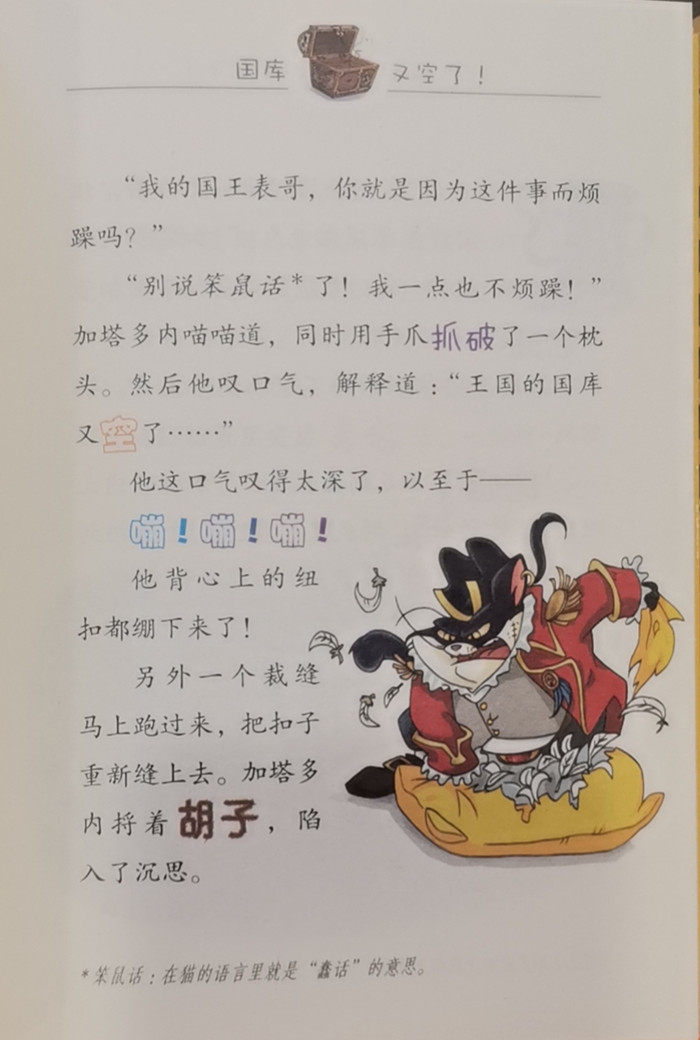 国库 又空了！
“我的国王表哥，你就是因为这件事而烦
躁吗？”
“别说笨鼠话*了！我一点也不烦躁！”
加塔多内喵喵道，同时用手爪抓破了一个枕
头。然后他叹口气，解释道：“王国的国库
又空了……”
他这口气叹得太深了，以至于——
嘣！嘣！嘣！
他背心上的纽
扣都绷下来了！
另外一个裁缝
马上跑过来，把扣子
重新缝上去。加塔多
内捋着胡子，陷
入了沉思。
*笨鼠话：在猫的语言里就是“蠢话”的意思。